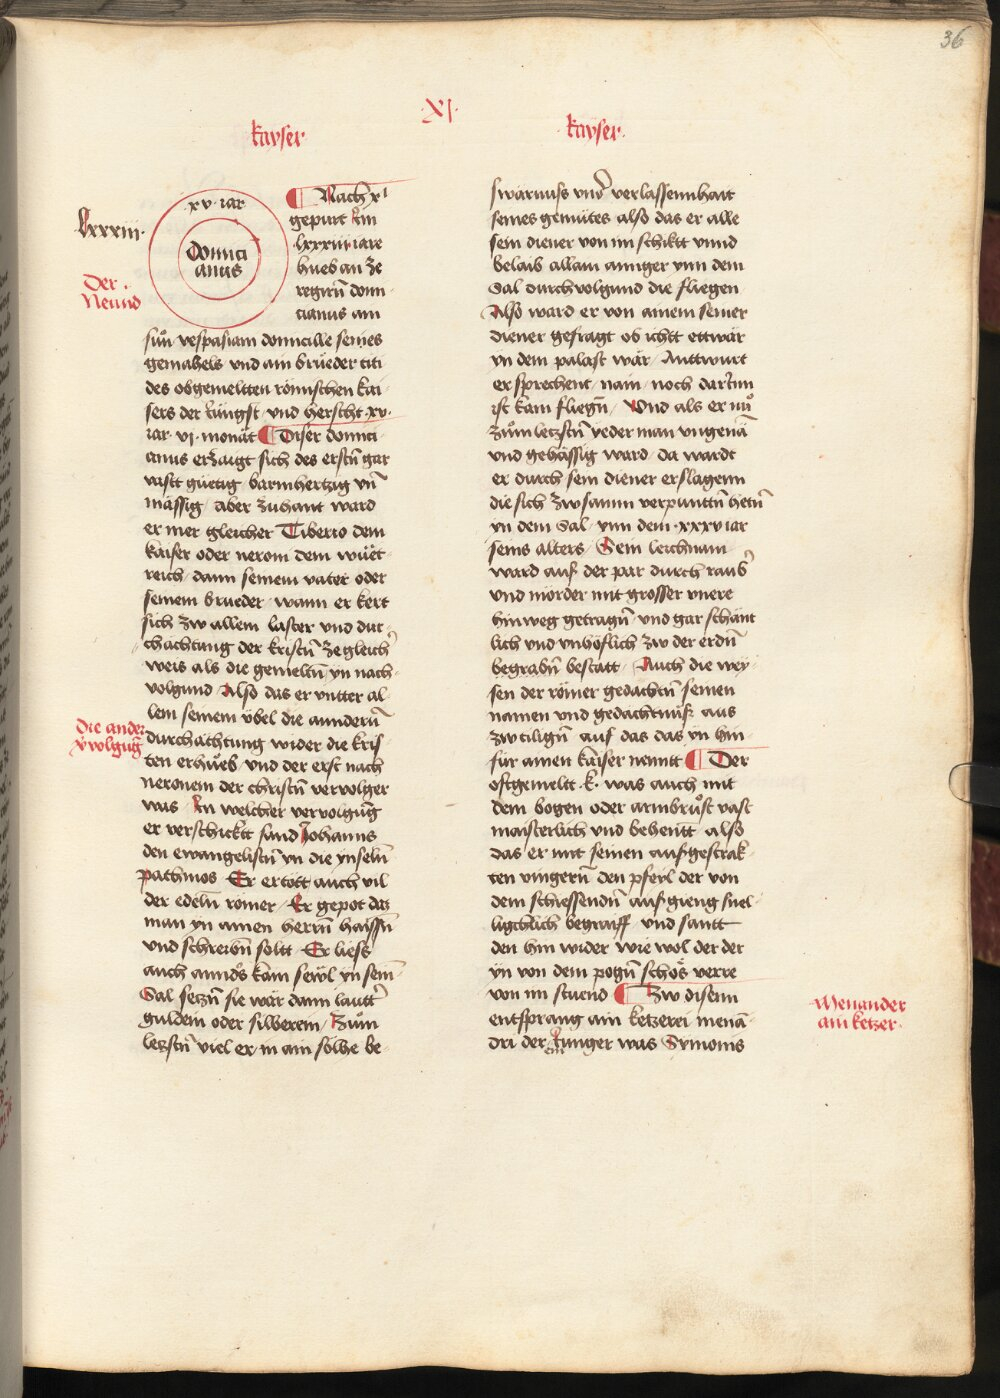 36
·XI·
kayser·
kayser·
lxxxiii·
Der·
Neund
xv· iar
Domici
anus
Nach xi
gepurt im
lxxxiii· iare
hueb an ze
regirn̄ domi
cianus ain
sun̊ vespasiani domicille seines
gemahels vnd ain brueder titi
des obgemeltten römischen kai
sers der Jüngst / vnd herscht ·xv·
iar· vi· monat Diser domici
anus erzaigt sich des erstn̄ gar
vasst güetig / barmhertzig vn̄
mässig / aber zuhant ward
er mer gleicher Tiberio dem
kaiser oder neroni dem wuet
reich / dann seinem vater oder
seinem brueder / wann er kert
sich zw allem laster vnd dur
chachtung der kristn̄ ze gleich
weis als die gemeltn̄ yn nach
volgund / Also das er vntter al
lem seinem vbel die anndern̄
Die ander
v̄volgūg
durchachtung wider die kris
ten erhueb / vnd der erst nach
neronem der christn̄ vervolger
was / In welcher vervolgūg
er verschickt sand Johanns
den ewangelistn̄ yn die ynseln̄
pathmos / Er ertott auch vil
der edeln̄ römer / Er gepot das
man yn ainen herrn̄ haissn̄
vnd schreibn̄ soltt / Er liess
auch annds kain sewl yn sein̄
Sal setzn̄ sie wär dann lautt̄
guldein oder silberein / Zum̊
letzstn̄ viel er in ain solhe be
swarnuss vnd verlassennhait
seines gemütes also das er alle
sein diener von im schikt vnnd
belaib allain ainiger ynn dem
Sal durchvolgund die fliegen
Also ward er von ainem seiner
diener gefragt ob ichtt ettwär
yn dem palast wär / Anttwurt
er sprechent / nain / noch darInn
ist kain fliegn̄ / Vnd als er nu̇
zům letzstn̄ yeder man vngenā
vnd gehässig ward / da wardt
er durch sein diener erslagenn
die sich zwsamm verpunttn̄ hetn̄
yn dem Sal / ynn dem ·xxxv iar
seins alters / Sein leichnam
ward auf der par durch raub̄
vnd mörder mit grosser vnere
hinweg getragn̄ vnd gar schänt
lich vnd vnhöflich zw der erdn̄
begrabn̄ bestatt / Auch die wey
sen der römer gedachtn̄ seinen
namen vnd gedächtnüss aus
zw tilign̄ auf das das yn hin
für ainen kaiser nenntt Der
oftgemeltt ·k· was auch mit
dem bogen oder armbrust vast
maisterlich vnd behentt / also
das er mit seinen aufgestrak
ten vingern̄ den pferl der von
dem schiessendn̄ aufgieng snel
ligchlich begraiff / vnd santt
den hin wider wie wol der der
yn von dem pogn̄ schos verre
von im stuend Zw disenn
entsprang ain ketzerei menā
dri der ein Junger was Symonis
Menander
ain ketzer·